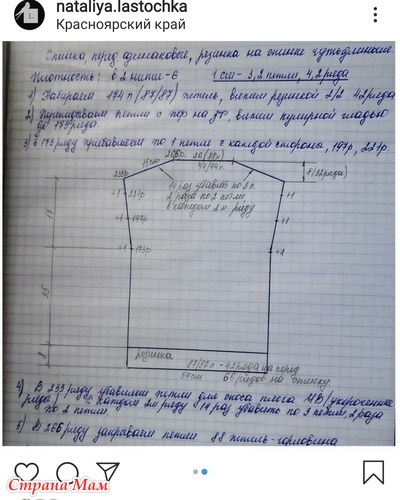 nataliya.lastochka
Красноярский край
Спинка, перед одинаковое, резинка на спинке чуть длиннее.
Плотность: в 2 нити - 6   1 см - 3,2 петли, 4,2 ряда
1) Набираем 174 п (87/87) петель, вяжем резинкой 2/2 42 ряда
2) петли с пер на зт, вяжем кулирной гладью
до 173 ряда.
3) в 173 ряду прибавляем по 1 петле с каждой стороны, 197р, 221р.
266р.
233р
44/44п
8 (32 ряда)
14 раз убавить по 3 п.
2 раза по 2 петли
в каждом 2м. ряду
+1 221р
+1
+1 197р
+1
+1 173р
+1
17
35
8
резинка
87/87п - 42 ряда на перед
54 см
рядов на спинку
4) В 233 ряду убавляем петли для скоса плеча ЧВ (укороченные
ряды) в каждом 2м. ряду 14 раз убавить по 3 петли, 2 раза
по 2 петли
5) В 266 ряду закрываем петли 88 петель - горловина
Страна Мам